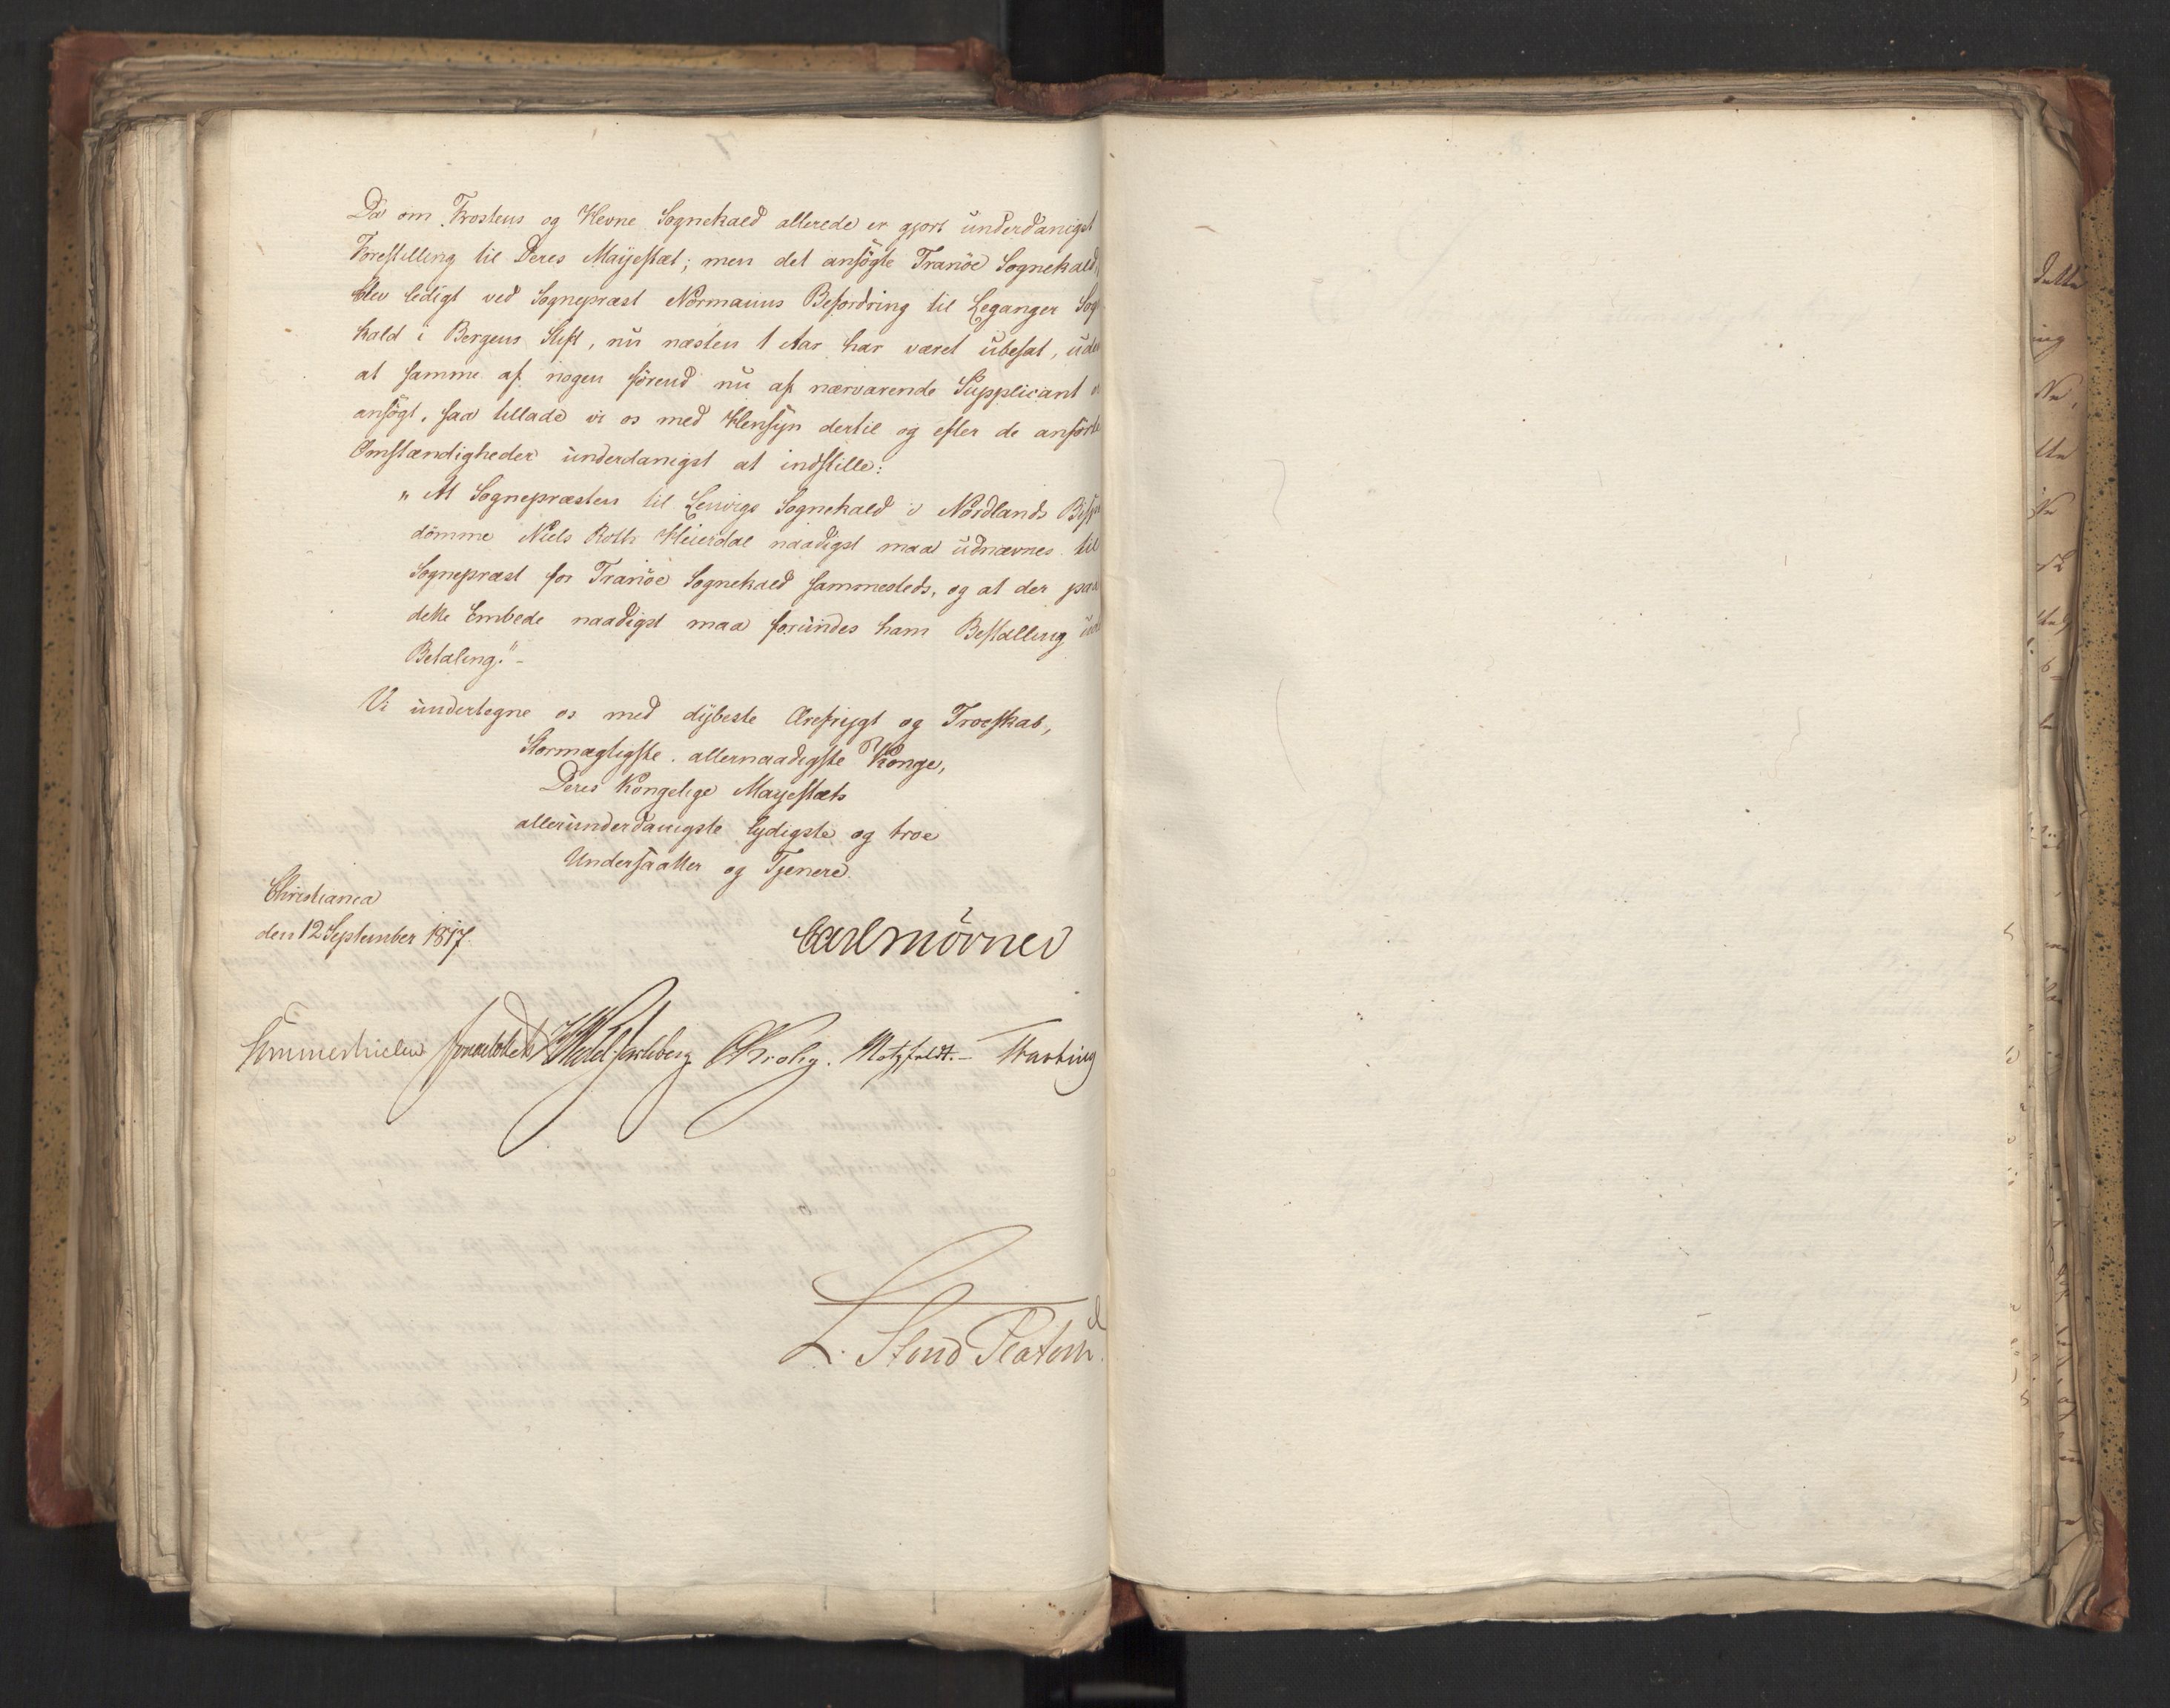 Da om Frostens og Hevne Sognekald allerede er gjort underdanigst
Forestilling til Deres Majestæt; men det ansögte Tranöe Sognekald,
blev ledigt ved Sognepræst Normanns Befordring til Leganger Sog
kald i Bergens Stift, nu næsten 1 Aar har været ubesat, uden
at samme af nogen förend nu af nærværende Supplicant er
ansögt, saa tillade vi os med Hensyn dertil og efter de anförte
Omstændigheder underdanigst at indstille:
„At Sognepræsten til Lenvigs Sognekald i Nordlands Bispe
dömme Niels Roth Heierdal naadigst maa udnævnes til
Sognepræst for Tranöe Sognekald sammesteds, og at der paa
dette Embede naadigst maa forundes ham Bestalling uden
Betaling."-
Vi undertegne os med dybeste Ærefrygt og Troeskab,
Stormægtigste, allernaadigste Konge,
Deres Kongelige Majestæts
allerunderdanigste lydigste og troe
Undersaatter og Tjenere.
Christiania
den 12 September 1817.
Carl Mörner
Sommerhielm Wedel Jarlsberg CKrohg. Motzfeldt.- Hartung